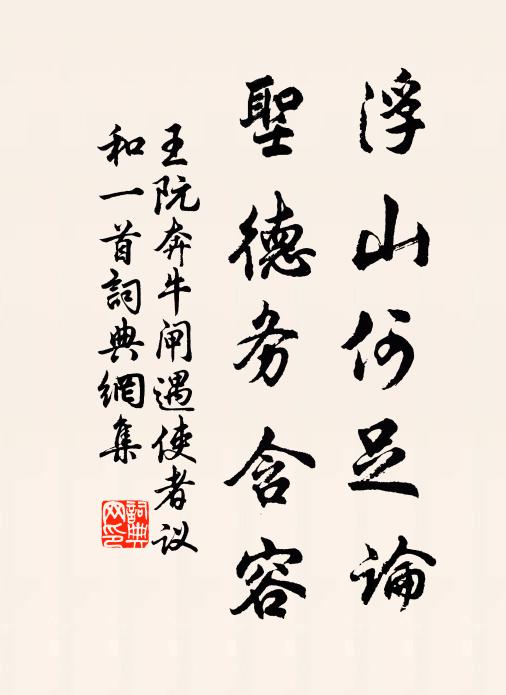 浮山何足論
聖德务含容
王阮奔牛闸遇使者议
和一首詞典網集
詞典网印